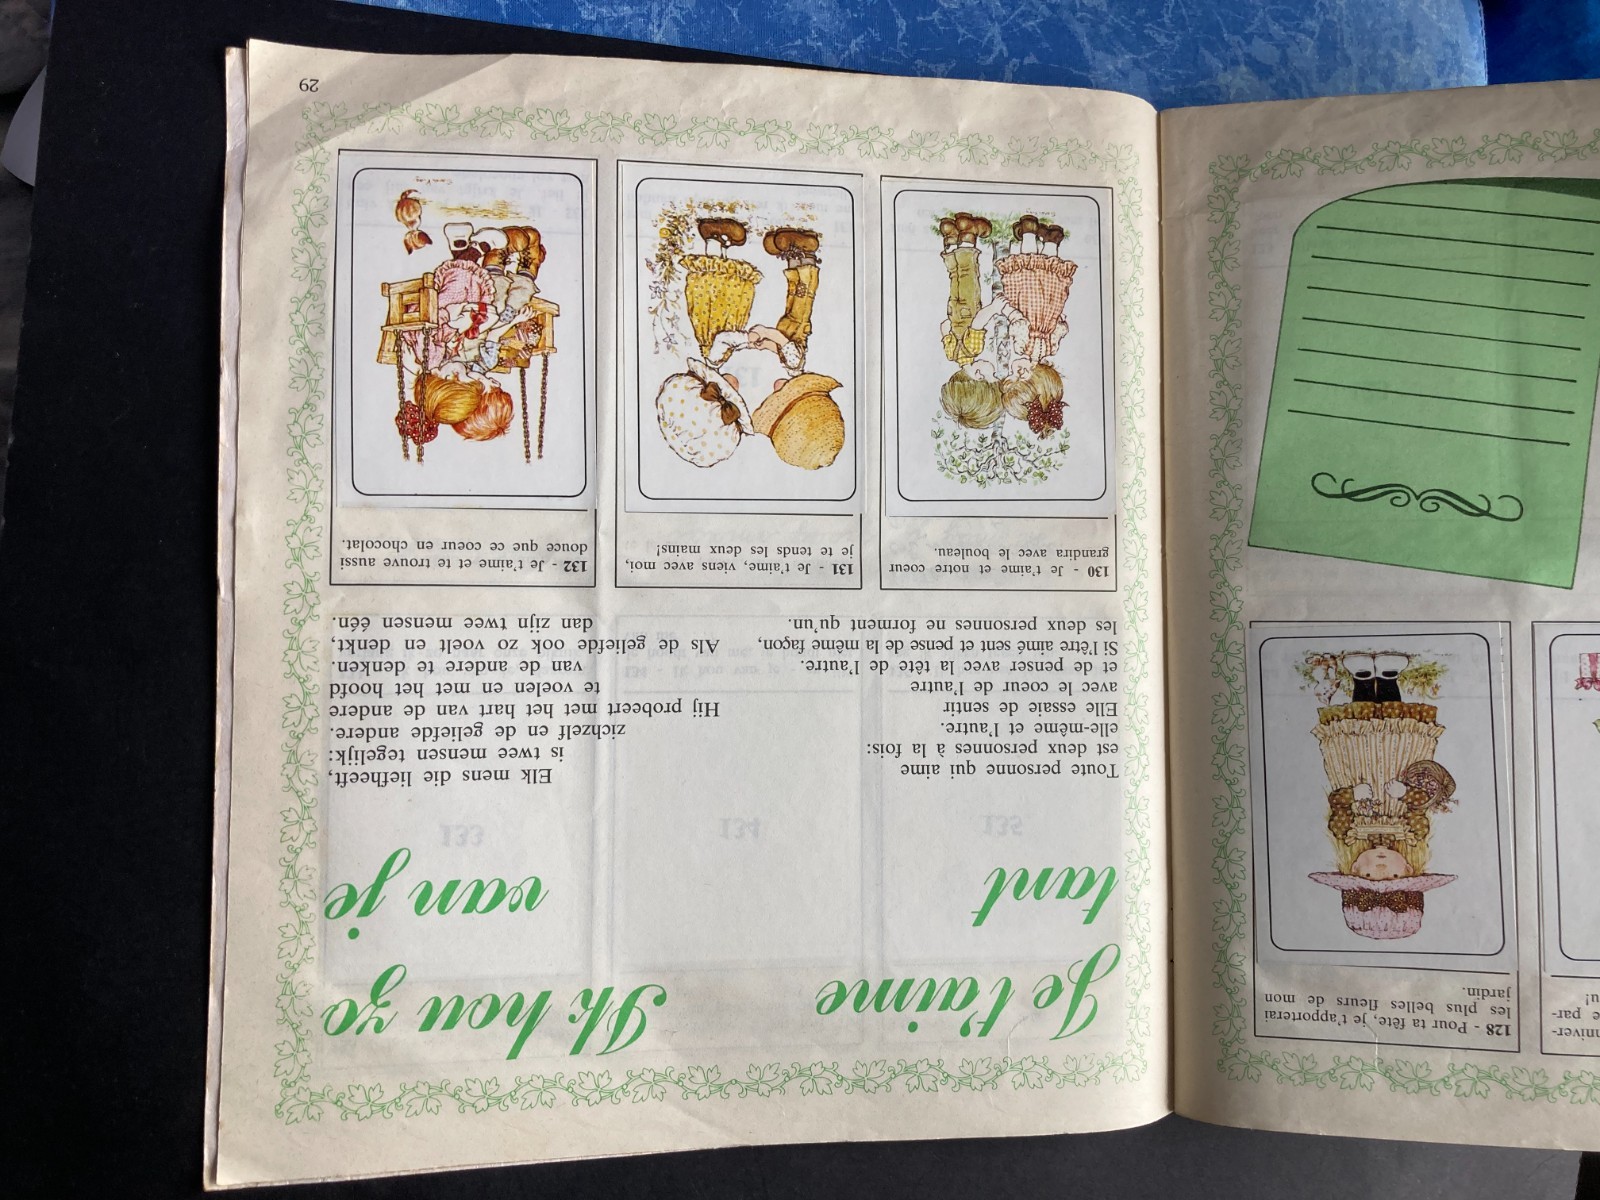 Je t'aime
tant
Ik hou zo
van je
Toute personne qui aime
est deux personnes à la fois:
elle-même et l'autre.
Elle essaie de sentir
avec le coeur de l'autre
et de penser avec la tête de l'autre.
Si l'être aimé sent et pense de la même façon,
les deux personnes ne forment qu'un.
Elk mens die liefheeft,
is twee mensen tegelijk:
zichzelf en de geliefde andere.
Hij probeert met het hart van de andere
te voelen en met het hoofd
van de andere te denken.
Als de geliefde ook zo voelt en denkt,
dan zijn twee mensen één.
130 - Je t'aime et notre coeur
grandira avec le bouleau.
131 - Je t'aime, viens avec moi,
je te tends les deux mains!
132 - Je t'aime et te trouve aussi
douce que ce coeur en chocolat.
29
128 - Pour ta fête, je t'apporterai
les plus belles fleurs de mon
jardin.
133
134
135